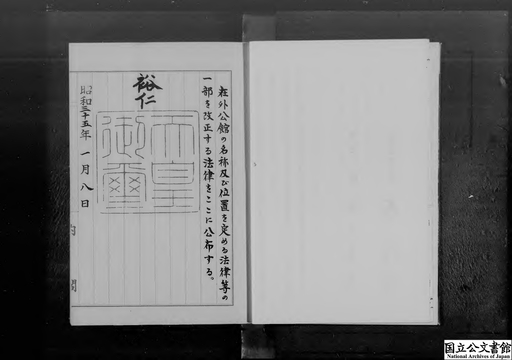 在外公館の名称及び位置を定める法律等の
一部を改正する法律をここに公布する。
裕仁
天皇
御璽
昭和三十五年一月八日
内閣
国立公文書館
National Archives of Japan